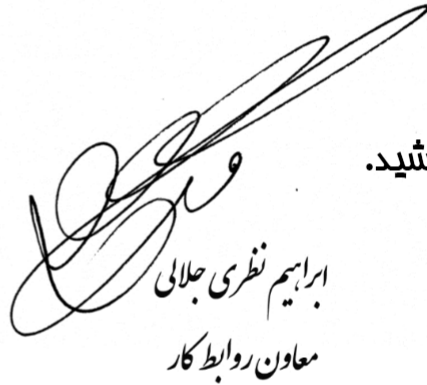 شید.
ابراهیم نظری جلالی
معاون روابط کار